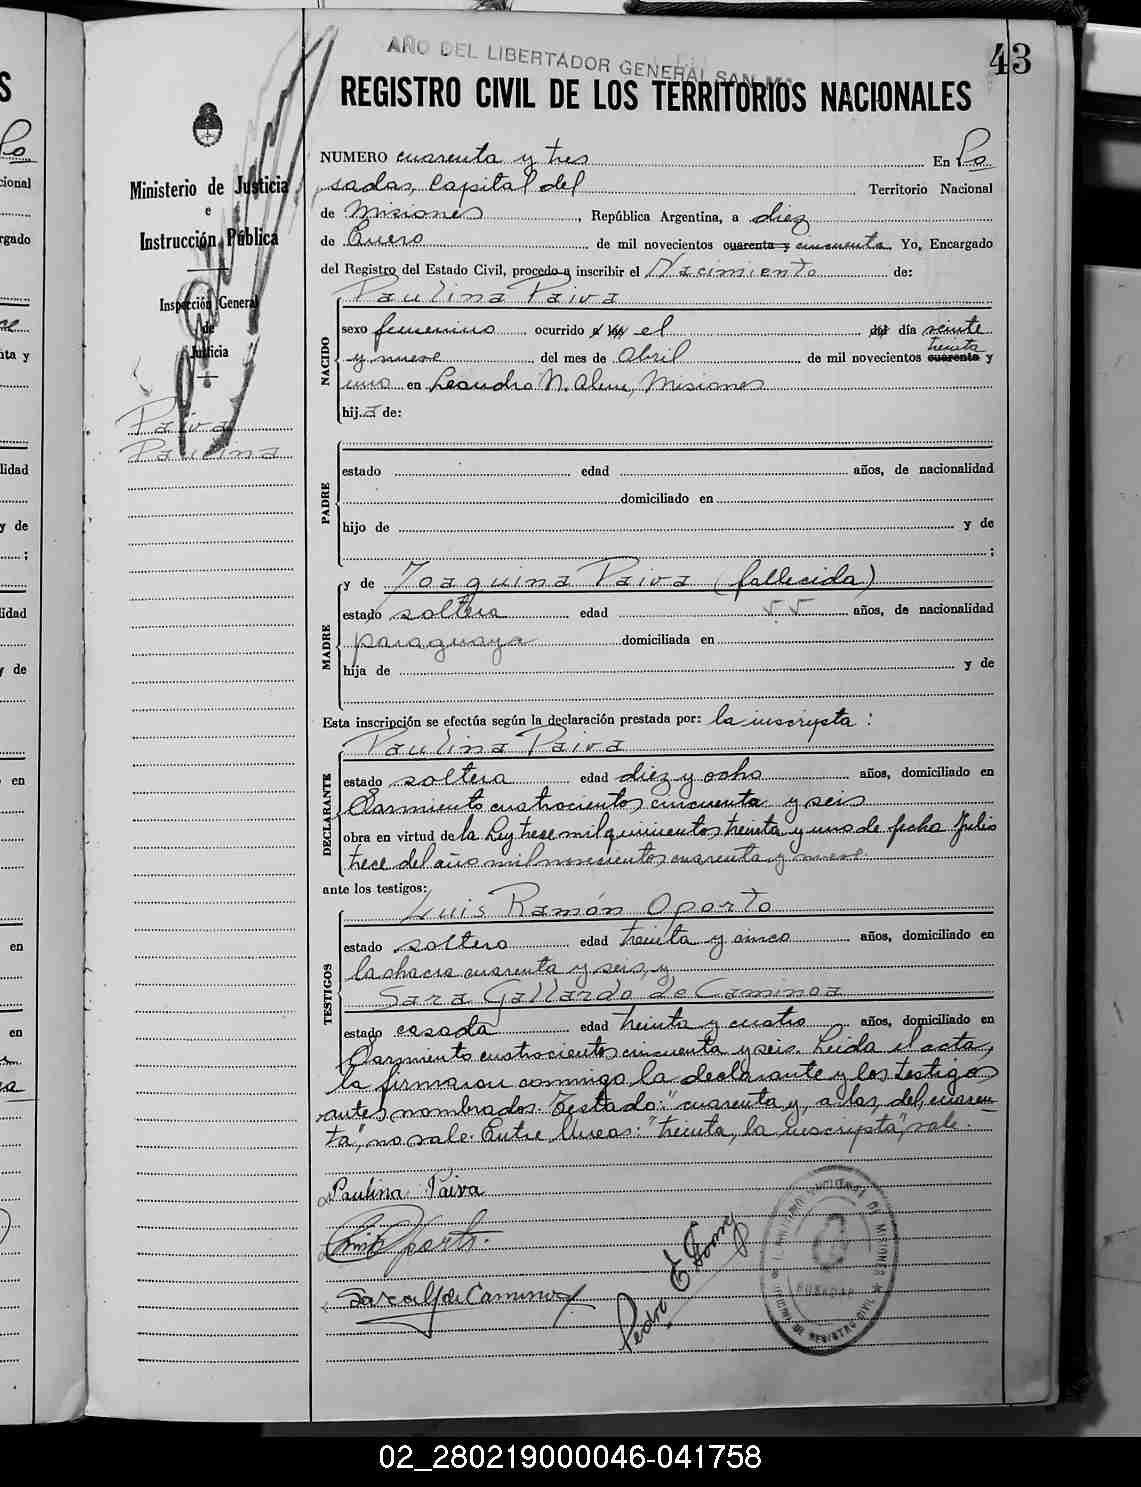 AÑO DEL LIBERTADOR GENERAL SAN MA
43
REGISTRO CIVIL DE LOS TERRITORIOS NACIONALES
Ministerio de Justicia
e
Instrucción Pública
Inspección General
de
Justicia
Paiva
Paulina
NUMERO cuarenta y tres En Po
sadas, Capital del Territorio Nacional
de Misiones, República Argentina, a diez
de Enero de mil novecientos cuarenta y cincuenta Yo, Encargado
del Registro del Estado Civil, procedo a inscribir el Nacimiento de:
Paulina Paiva
NACIDO
sexo femenino ocurrido a las el del día veinte
y nueve del mes de Abril de mil novecientos cuarenta treinta y
uno en Leandro N. Alem, Misiones
hija de:
PADRE
estado edad años, de nacionalidad
domiciliado en
hijo de y de
;
MADRE
y de Joaquina Paiva (fallecida)
estado soltera edad años, de nacionalidad
paraguaya domiciliada en
hija de y de
Esta inscripción se efectúa según la declaración prestada por: la inscripta:
Paulina Paiva
DECLARANTE
estado soltera edad diez y ocho años, domiciliado en
Sarmiento cuatrocientos cincuenta y seis
obra en virtud de la Ley trece mil quinientos treinta y uno de fecha Julio
trece del año mil novecientos cuarenta y nueve
ante los testigos:
Luis Ramón Oporto
TESTIGOS
estado soltero edad treinta y cinco años, domiciliado en
la chacra cuarenta y seis, y
Sara Gallardo de Caminoa
estado casada edad treinta y cuatro años, domiciliado en
Sarmiento cuatrocientos cincuenta y seis. Leida el acta,
la firmaron conmigo la declarante y los testigos
antes nombrados. Testado: "cuarenta y, a las, del, cuaren-
ta", no vale. Entre líneas: "treinta, la inscripta", vale.
Paulina Paiva
Oporto.
Sara G. de Caminoa
Pedro E.
DE MISIONES
POSADAS
REGISTRO CIVIL
02_280219000046-041758